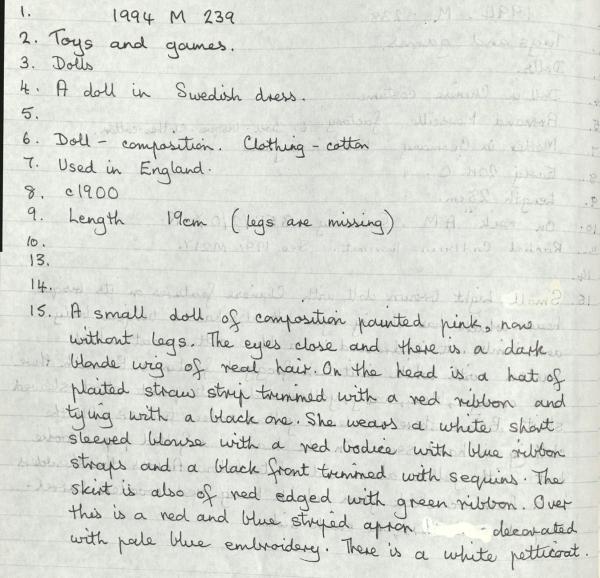 1. 1994 M 239
2. Toys and games.
3. Dolls
4. A doll in Swedish dress.
5.
6. Doll - composition. Clothing - cotton
7. Used in England.
8. c1900
9. Length 19cm (legs are missing)
10.
13.
14.
15. A small doll of composition painted pink, now
without legs. The eyes close and there is a dark
blonde wig of real hair. On the head is a hat of
plaited straw strip trimmed with a red ribbon and
tying with a black one. She wears a white short
sleeved blouse with a red bodice with blue ribbon
straps and a black front trimmed with sequins. The
skirt is also of red edged with green ribbon. Over
this is a red and blue striped apron decorated
with pale blue embroidery. There is a white petticoat.